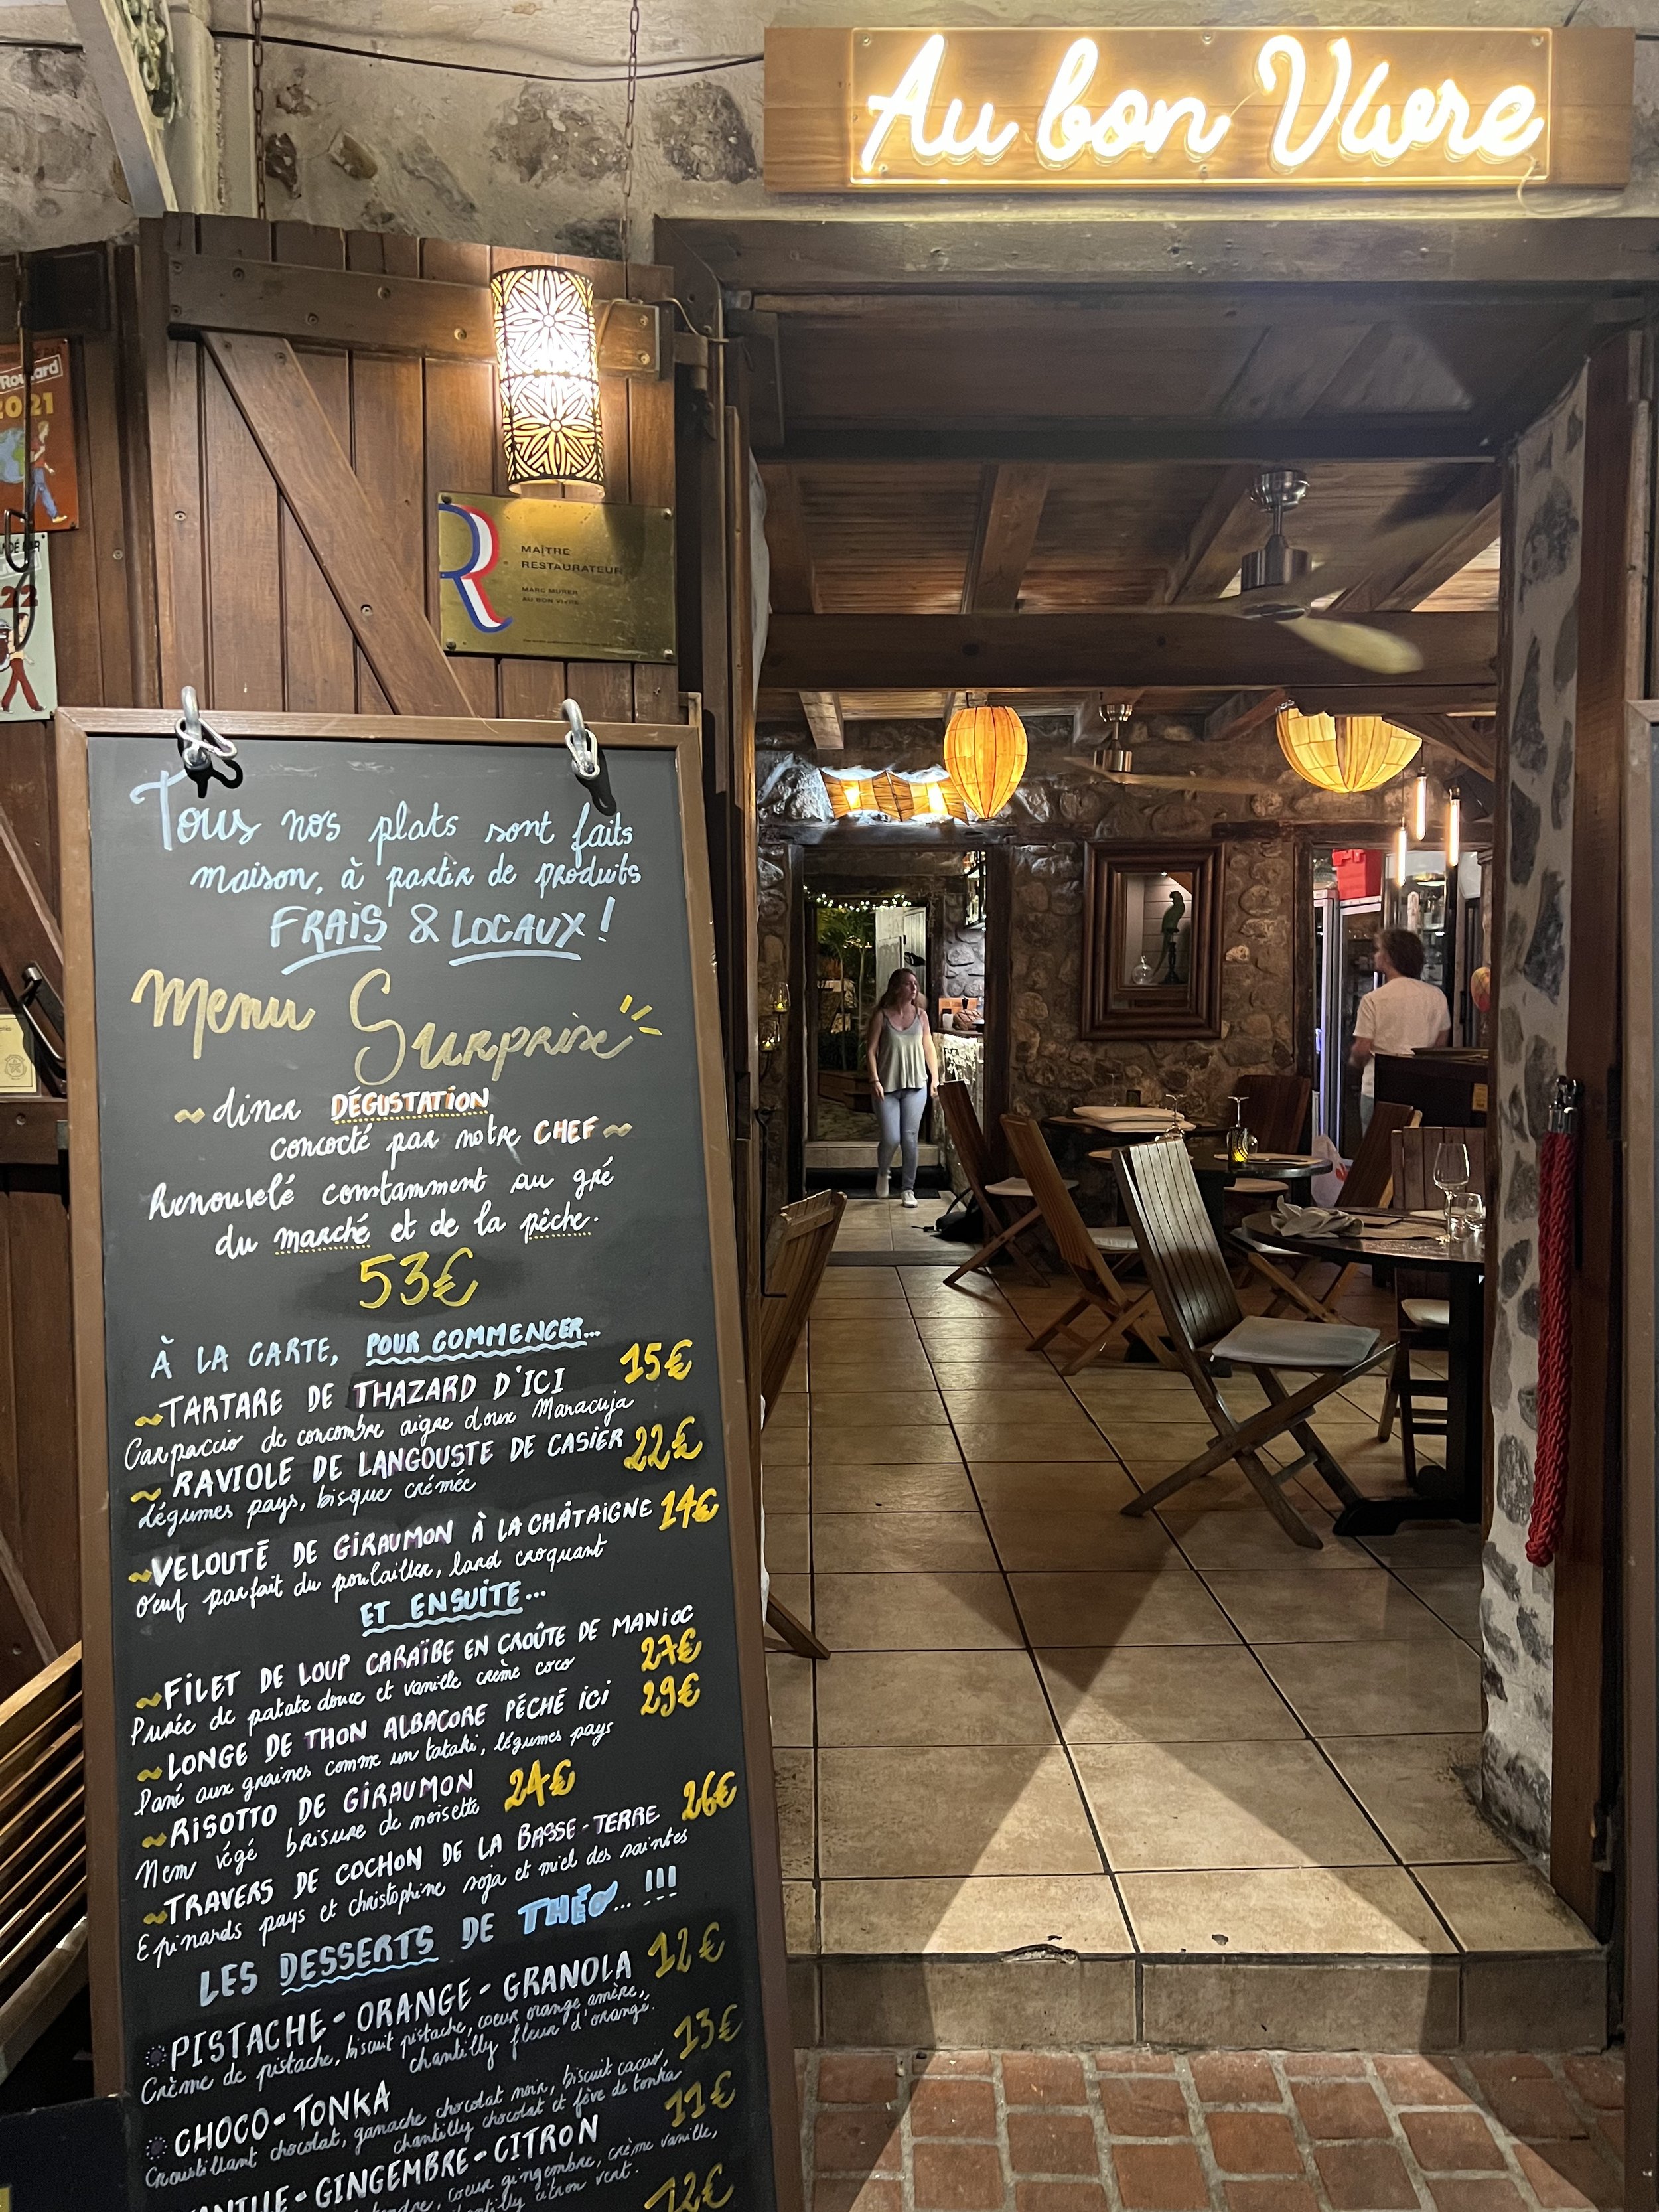 Au bon Vivre
Routard
2021
22
MAÎTRE
RESTAURATEUR
MARC MURER
AU BON VIVRE
Tous nos plats sont faits
maison, à partir de produits
FRAIS & LOCAUX !
Menu Surprise
~ diner DÉGUSTATION
concocté par notre CHEF ~
Renouvelé constamment au gré
du marché et de la pêche.
53€
À LA CARTE, POUR COMMENCER...
~TARTARE DE THAZARD D'ICI 15€
Carpaccio de concombre aigre doux Maracuja
~ RAVIOLE DE LANGOUSTE DE CASIER 22€
légumes pays, bisque crémée
~VELOUTÉ DE GIRAUMON À LA CHÂTAIGNE 14€
Oeuf parfait du poulailler, lard croquant
ET ENSUITE...
~FILET DE LOUP CARAÏBE EN CROÛTE DE MANIOC
Purée de patate douce et vanille crème coco 27€
~LONGE DE THON ALBACORE PÉCHÉ ICI 29€
Pané aux graines comme un tataki, légumes pays
~RISOTTO DE GIRAUMON 24€
Nem végé brisure de noisette
~TRAVERS DE COCHON DE LA BASSE-TERRE 26€
Epinards pays et christophine soja et miel des saintes
LES DESSERTS DE THÉO...!!!
PISTACHE-ORANGE-GRANOLA 12€
Crème de pistache, biscuit pistache, coeur orange amère,
chantilly fleur d'orange.
CHOCO-TONKA 13€
Croustillant chocolat, ganache chocolat noir, biscuit cacao,
chantilly chocolat et fève de tonka
VANILLE-GINGEMBRE-CITRON 11€
tendre, coeur gingembre, crème vanille,
chantilly citron vert.
12€